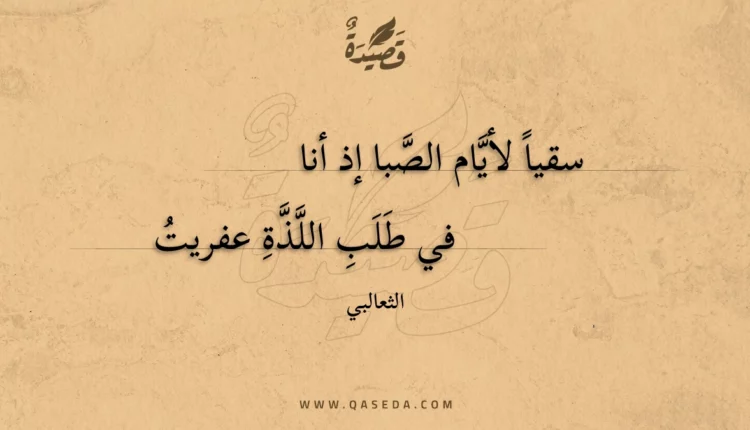 قَصِيدَةٌ
سقياً لأيَّام الصَّبا إذ أنا
في طَلَبِ اللَّذَّةِ عفريتُ
الثعالبي
WWW.QASEDA.COM